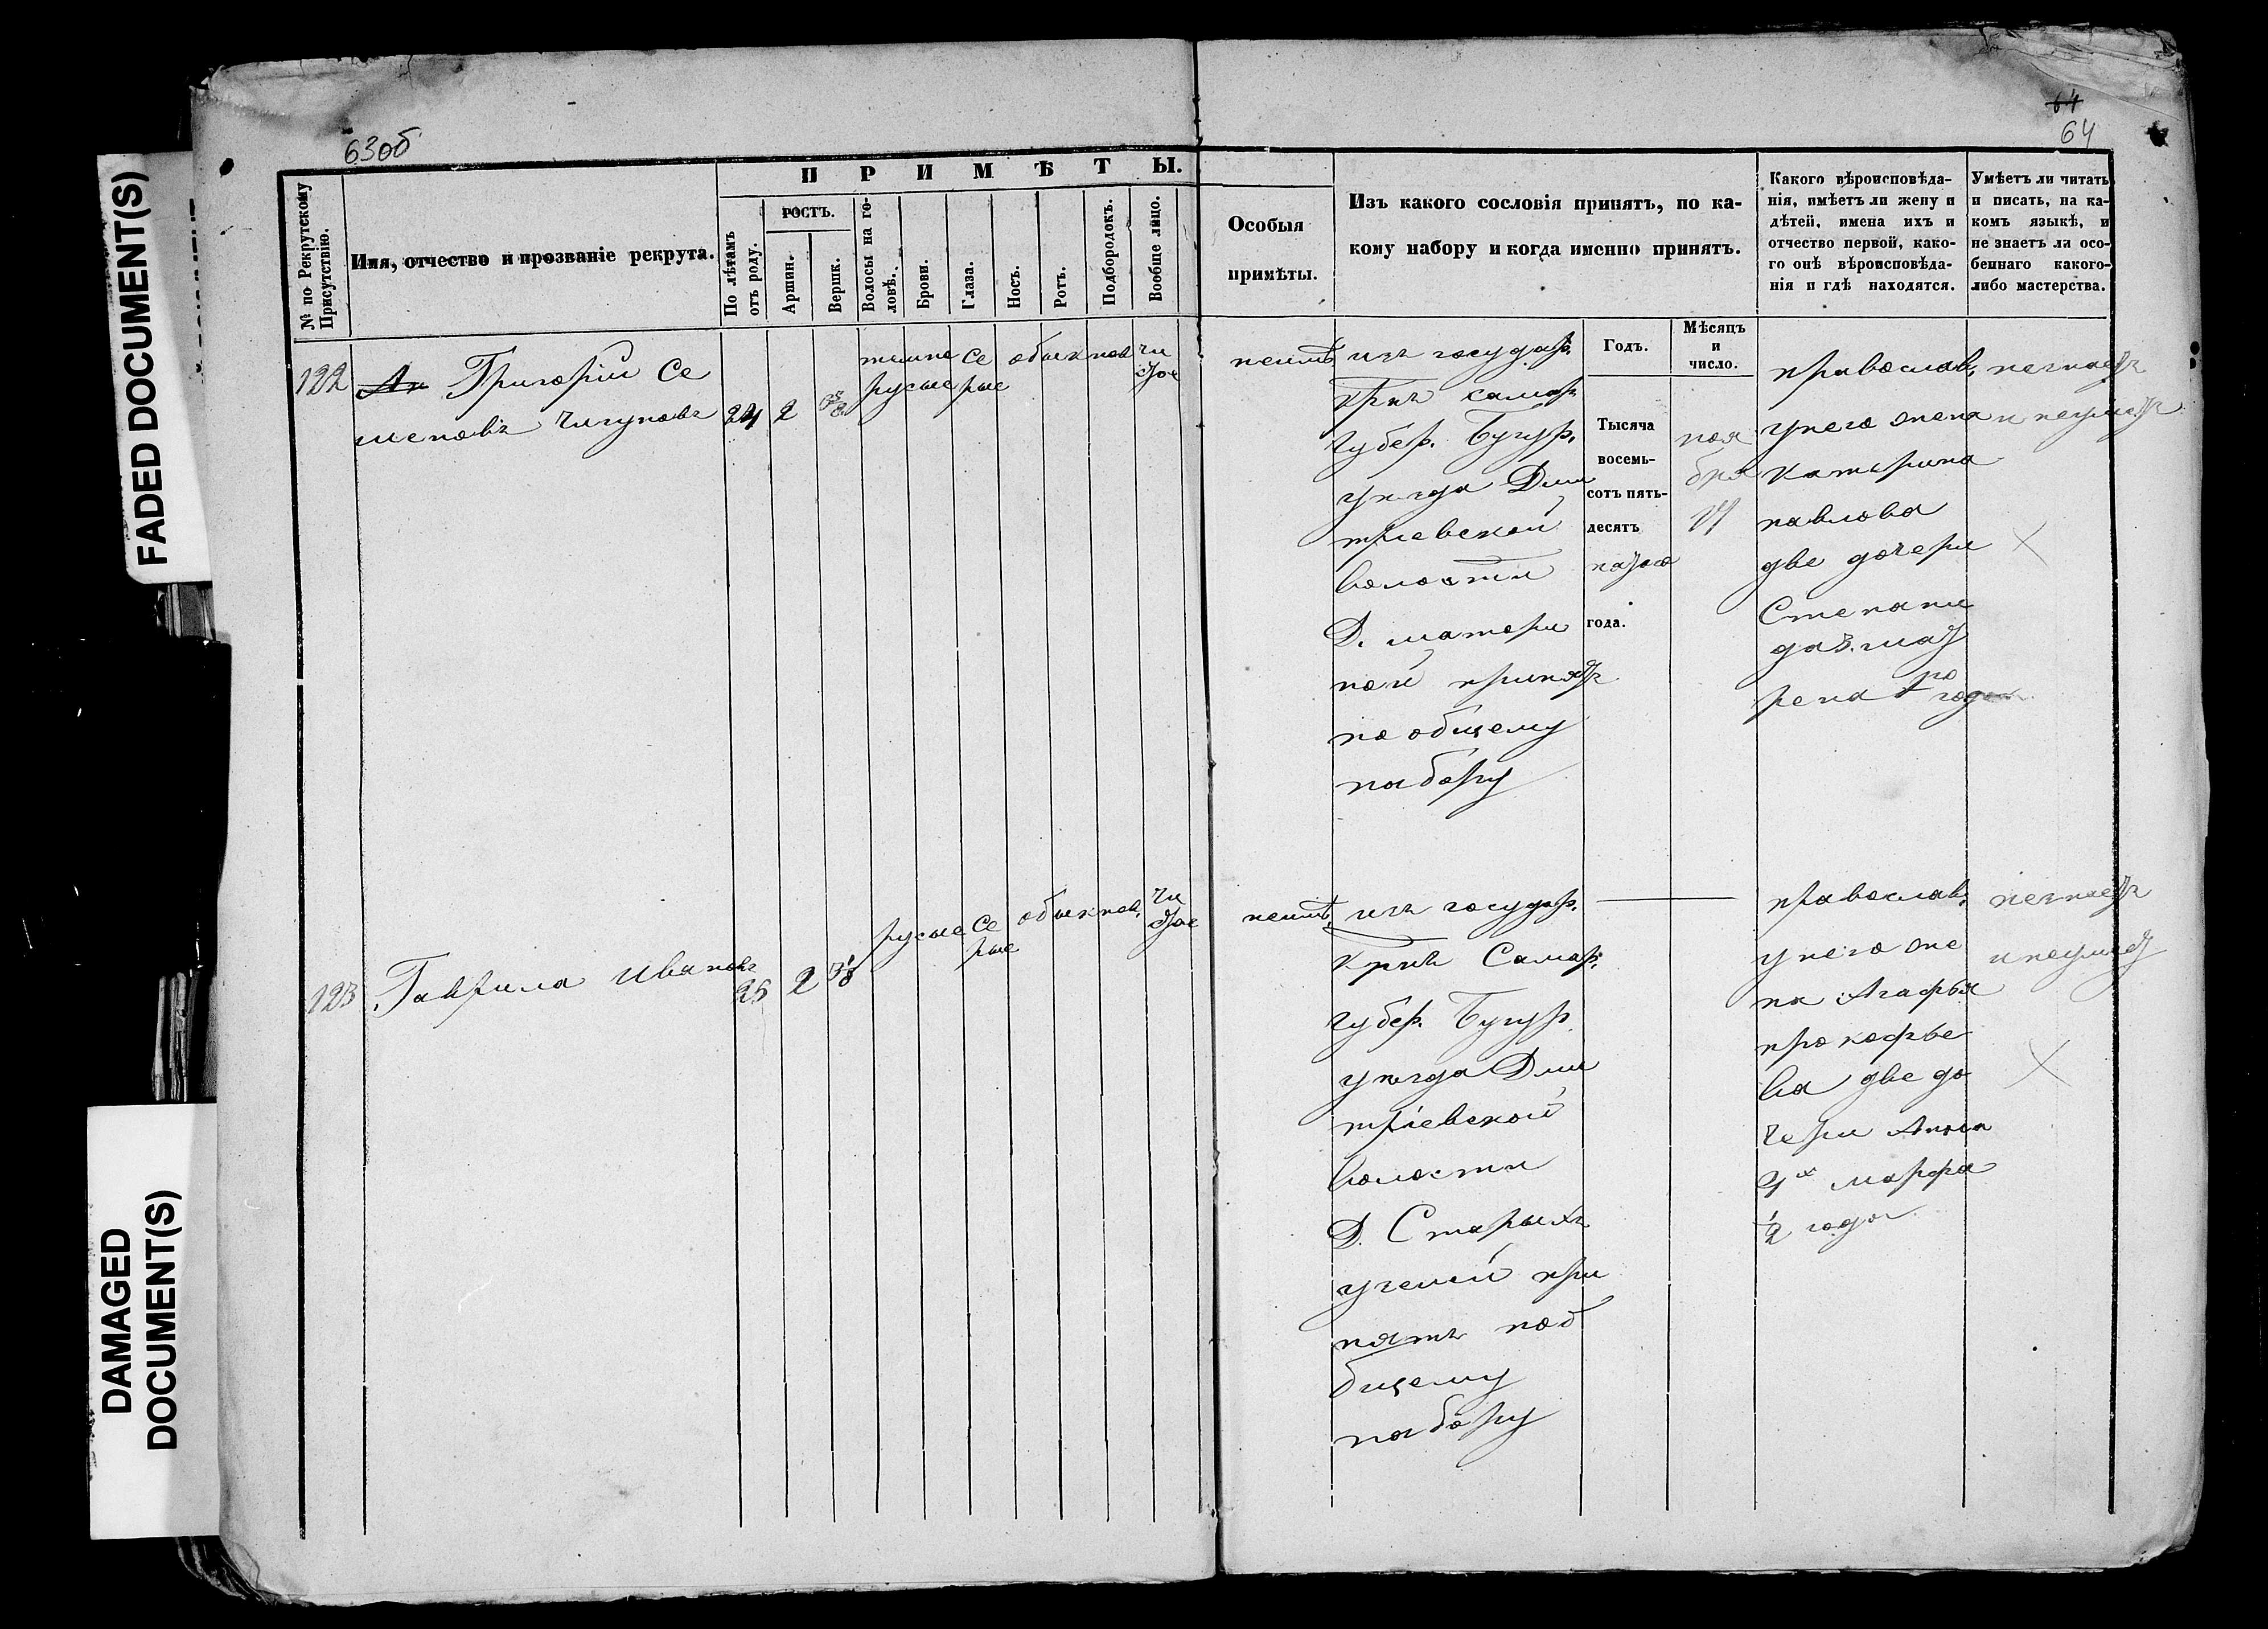 FADED DOCUMENT(S)
DAMAGED
DOCUMENT(S)
63об
64
64
№ по Рекрутскому
Присутствію.
Имя, отчество и прозваніе рекрута.
ПРИМѢТЫ.
По лѣтамъ
отъ роду.
РОСТЪ.
Аршин.
Вершк.
Волосы на го-
ловѣ.
Брови.
Глаза.
Носъ.
Ротъ.
Подбородокъ.
Вообще лицо.
Особыя
примѣты.
Изъ какого сословія принятъ, по ка-
кому набору и когда именно принятъ.
Какого вѣроисповѣда-
нія, имѣетъ ли жену и
дѣтей, имена ихъ и
отчество первой, како-
го онѣ вѣроисповѣда-
нія и гдѣ находятся.
Умѣетъ ли читать
и писать, на ка-
комъ языкѣ, и
не знаетъ ли осо-
беннаго какого-
либо мастерства.
122
Григорій Се
меновъ Чигуновъ
24
2
темно
русые
се
рые
обыкнов
чи
стое
неимѣ
изъ государ.
крнъ самар
губер. Бугур.
уезда Дми
тріевской
волости
Д. матери
ной принятъ
по общему
набору
Годъ.
Тысяча
восемь-
сотъ пять-
десятъ
пятого
года.
Мѣсяцъ
и
число.
ноя
бря
православ,
унего жена
катерина
павлова
две дочери
Степани
да 3. мат
рена
по
незнаетъ
и неумеетъ
123
Гаврила Ивановъ
25
2
русые
се
рые
обыкнов,
чи
стое
неимѣ
изъ государ.
крнъ Самар.
губер. Бугур
уезда Дми
тріевской
волости
Д. Старыхъ
при
нятъ поо
бщему
набору
православ,
унего же
на Агафья
прокофье
ва две до
чери Анна
4х марфа
1/2 года
незнаетъ
и неумеет